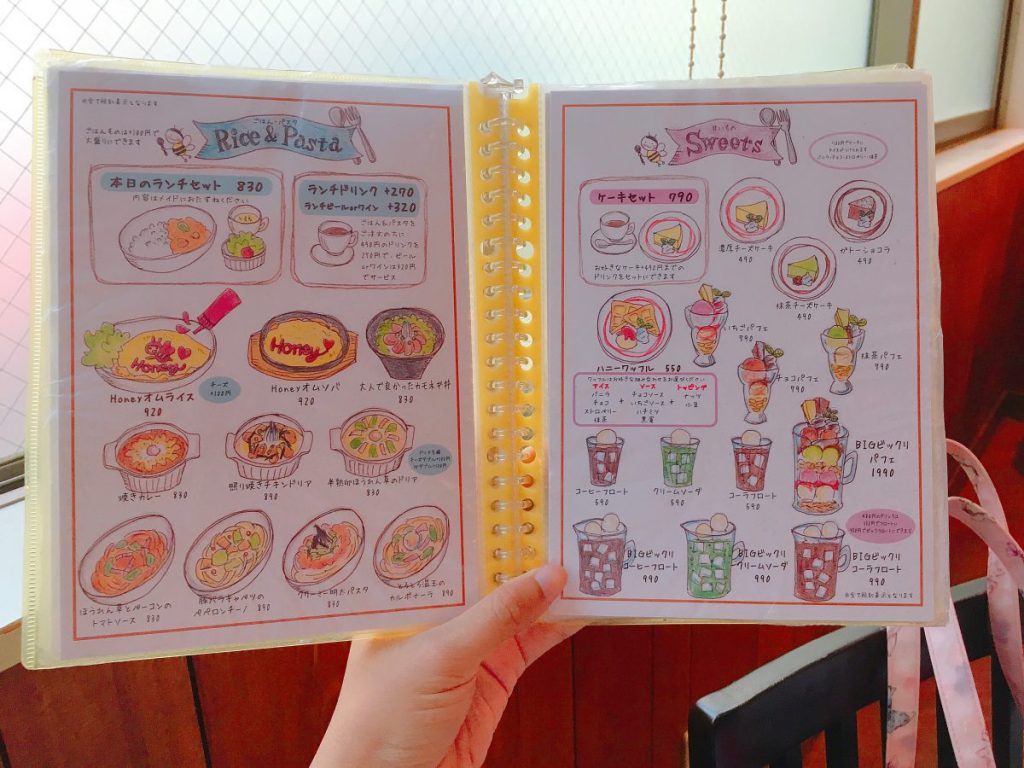 ※全て税別表示となります
ごはん・パスタ
Rice & Pasta
ごはんものは+100円で
大盛りにできます
本日のランチセット 830
内容はメイドにおたずねください
ランチドリンク +270
ランチビールorワイン +320
ごはん&パスタを
ご注文の方に
490円のドリンクを
270円で、ビール
orワインは320円
でサービス
Honey
Honeyオムライス
920
チーズ
+100円
Honey
Honeyオムソバ
920
大人で良かったカモネギ丼
830
焼きカレー 830
照り焼きチキンドリア
890
半熟卵ほうれん草のドリア
830
ほうれん草とベーコンの
トマトソース 830
豚バラキャベツの
ペペロンチーノ 890
クリーミー明太パスタ
890
とろとろ温玉の
カルボナーラ 890
すいーつ
Sweets
ケーキセット 790
お好きなケーキ+490円までの
ドリンクをセットにできます
濃厚チーズケーキ
490
ガトーショコラ
490
抹茶チーズケーキ
490
ハニーワッフル 550
ワッフルはお好きな組み合わせをお選びください
アイス ソース トッピング
バニラ チョコソース ナッツ
チョコ + いちごソース + 小豆
ストロベリー ハチミツ
抹茶 黒蜜
いちごパフェ
790
チョコパフェ
790
抹茶パフェ
790
BIGビックリ
パフェ
1990
コーヒーフロート
590
クリームソーダ
590
コーラフロート
590
BIGビックリ
コーヒーフロート
990
BIGビックリ
クリームソーダ
990
BIGビックリ
コーラフロート
990
※全て税別表示となります